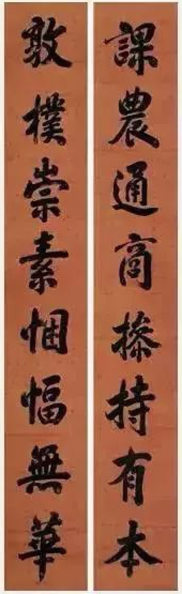 課農通商操持有本
敦樸崇素悃愊無華